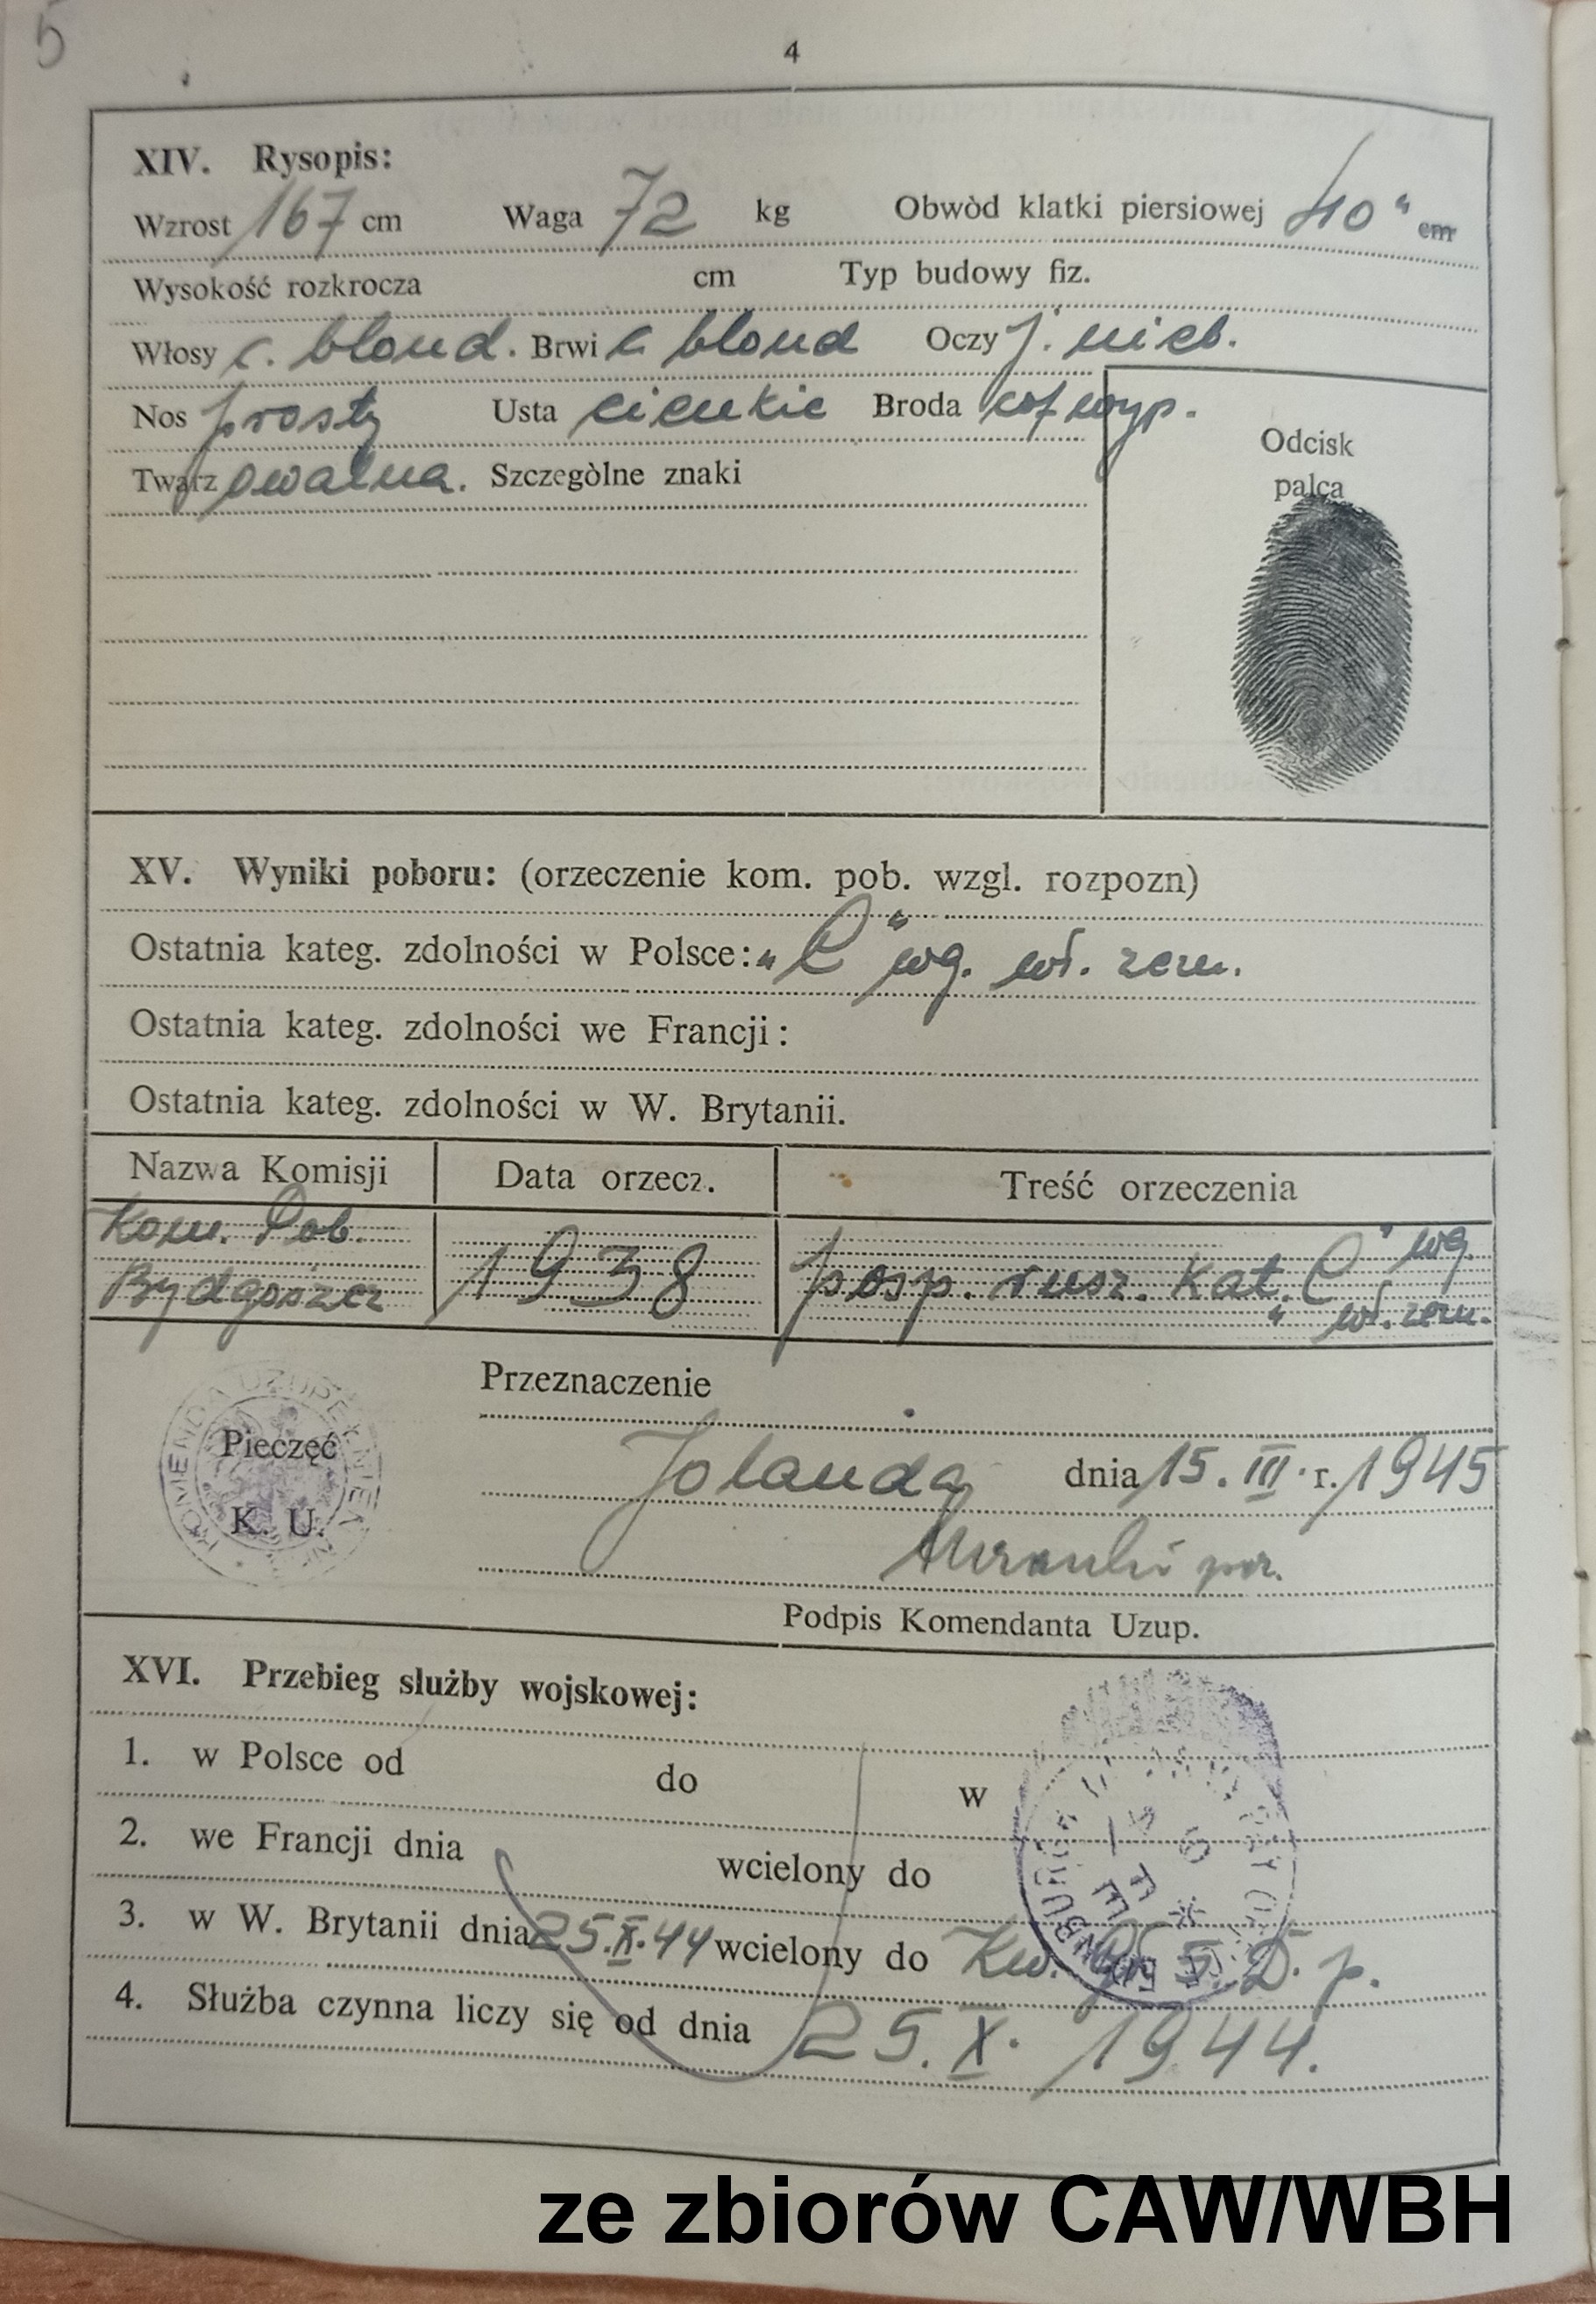 5
4
XIV. Rysopis:
Wzrost 167 cm Waga 72 kg Obwòd klatki piersiowej 40" cm
Wysokość rozkrocza cm Typ budowy fiz.
Włosy c. blond. Brwi c blond Oczy j. nieb.
Nos prosty Usta cienkie Broda wyp.
Twarz owalna. Szczegòlne znaki
Odcisk
palca
XV. Wyniki poboru: (orzeczenie kom. pob. wzgl. rozpozn)
Ostatnia kateg. zdolności w Polsce: „C" wg. wł. zezn.
Ostatnia kateg. zdolności we Francji:
Ostatnia kateg. zdolności w W. Brytanii.
Nazwa Komisji Data orzecz. Treść orzeczenia
Kom. Pob. 1938 posp. rusz. kat. „C" wg.
Bydgoszcz wł. zezn.
Przeznaczenie
Pieczęć
K. U.
KOMENDA UZUPEŁNIEŃ
Jolanda dnia 15. III. r. 1945
por.
Podpis Komendanta Uzup.
XVI. Przebieg służby wojskowej:
1. w Polsce od do w
2. we Francji dnia wcielony do
3. w W. Brytanii dnia 25.X.44 wcielony do Kw. Gł. 5. D. p.
4. Służba czynna liczy się od dnia 25. X. 1944.
ze zbiorów CAW/WBH